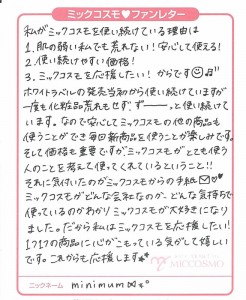 ミックコスモ♥ファンレター
私がミックコスモを使い続けている理由は
1.肌の弱い私でも荒れない!安心して使える!
2.使い続けやすい価格!
3.ミックコスモを応援したい! からです☺♫"
ホワイトラベルの発売当初から使い続けていますが
一度も化粧品荒れもせず、ずーーっと使い続けて
います。なので安心してミックコスモの他の商品も
使うことができ毎回新商品を使うことが楽しみです。
そして価格も重要ですが、ミックコスモがとても使う
人のことを考えて使ってくれているということ!!
それに気付いたのがミックコスモからの手紙✉♡♥
ミックコスモがどんな会社なのか、どんな気持ちで
使っているのかわかりミックコスモが大好きになり
ました。だから私はミックコスモを応援したい!
1つ1つの商品に心がこもっている気がして嬉しい
です。これからも応援します★*
MICCOSMO
ニックネーム minimum